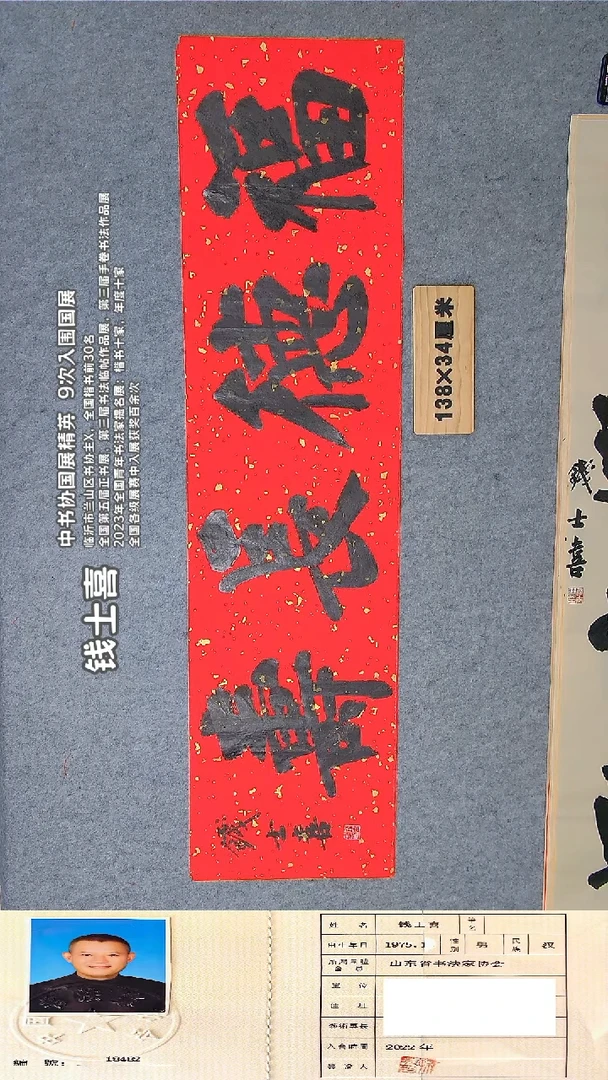 钱士喜
中书协国展精英 9次入围国展
临沂市兰山区书协主X、全国楷书前30名
全国第五届正书展、第三届书法临帖作品展、第三届手卷书法作品展
2023年全国青年书法家提名展；楷书十家、年度十家
全国各级展赛中入展获奖百余次
福德長壽
錢士喜
138×34厘米
錢士喜
姓 名 钱士喜
1975.1 性别 男 民族 汉
山东省书法家协会
入会時間 2022年
編 號：